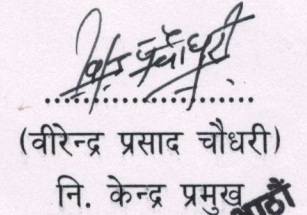 (वीरेन्द्र प्रसाद चौधरी)
नि. केन्द्र प्रमुख